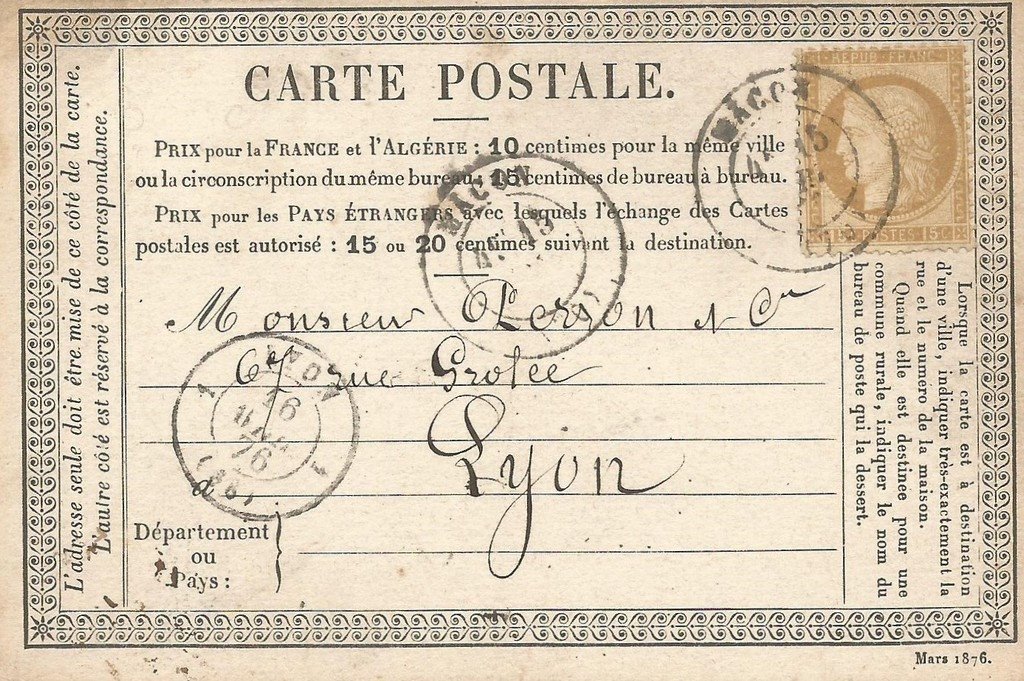 CARTE POSTALE.
PRIX pour la FRANCE et l'ALGÉRIE : 10 centimes pour la même ville
ou la circonscription du même bureau; 15 centimes de bureau à bureau.
PRIX pour les PAYS ÉTRANGERS avec lesquels l'échange des Cartes
postales est autorisé : 15 ou 20 centimes suivant la destination.
Monsieur Person et Cie
67 rue Grolée
Lyon
Département
ou
Pays :
L'adresse seule doit être mise de ce côté de la carte.
L'autre côté est réservé à la correspondance.
Lorsque la carte est à destination
d'une ville, indiquer très-exactement la
rue et le numéro de la maison.
Quand elle est destinée pour une
commune rurale, indiquer le nom du
bureau de poste qui la dessert.
REPUB FRANC
POSTES 15 C
15 C
MÂCON
15
MÂCON
15
LYON
16
MARS
76
Mars 1876.